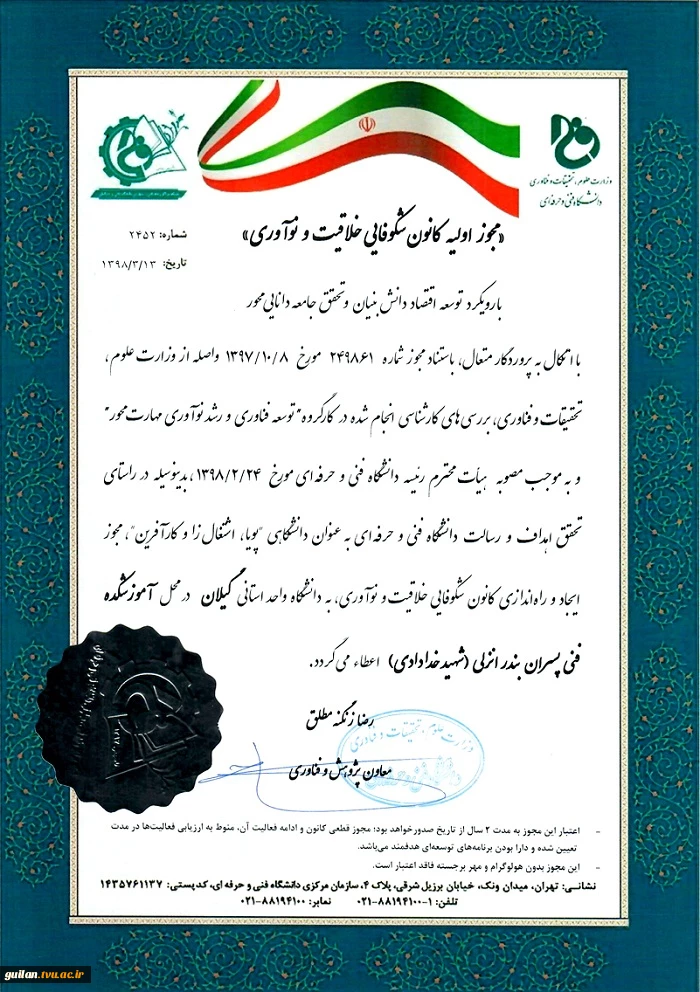 وزارت علوم، تحقیقات و فناوری
دانشگاه فنی و حرفه‌ای
«مجوز اولیه کانون شکوفایی خلاقیت و نوآوری»
شماره: ۲۴۵۲
تاریخ: ۱۳۹۸/۳/۱۳
با رویکرد توسعه اقتصاد دانش بنیان و تحقق جامعه دانایی محور
با اتکال به پروردگار متعال، باستناد مجوز شماره ۲۴۹۸۶۱ مورخ ۱۳۹۷/۱۰/۸ واصله از وزارت علوم،
تحقیقات و فناوری، بررسی های کارشناسی انجام شده در کارگروه "توسعه فناوری و رشد نوآوری مهارت محور"
و به موجب مصوبه هیأت محترم رئیسه دانشگاه فنی و حرفه ای مورخ ۱۳۹۸/۲/۲۴، بدینوسیله در راستای
تحقق اهداف و رسالت دانشگاه فنی و حرفه ای به عنوان دانشگاهی "پویا، اشتغال زا و کارآفرین"، مجوز
ایجاد و راه اندازی کانون شکوفایی خلاقیت و نوآوری، به دانشگاه واحد استانی گیلان در محل آموزشکده
فنی پسران بندر انزلی (شهید خدادادی) اعطاء می گردد.
رضا زنگنه مطلق
معاون پژوهش و فناوری
وزارت علوم، تحقیقات و فناوری
- اعتبار این مجوز به مدت ۲ سال از تاریخ صدور خواهد بود؛ مجوز قطعی کانون و ادامه فعالیت آن، منوط به ارزیابی فعالیت‌ها در مدت
تعیین شده و دارا بودن برنامه‌های توسعه‌ای هدفمند می‌باشد.
- این مجوز بدون هولوگرام و مهر برجسته فاقد اعتبار است.
نشانی: تهران، میدان ونک، خیابان برزیل شرقی، پلاک ۴، سازمان مرکزی دانشگاه فنی و حرفه ای، کدپستی: ۱۴۳۵۷۶۱۱۳۷
تلفن: ۱-۸۸۱۹۴۱۰۰-۰۲۱ نمابر: ۸۸۱۹۴۱۰۰-۰۲۱
guilan.tvu.ac.ir